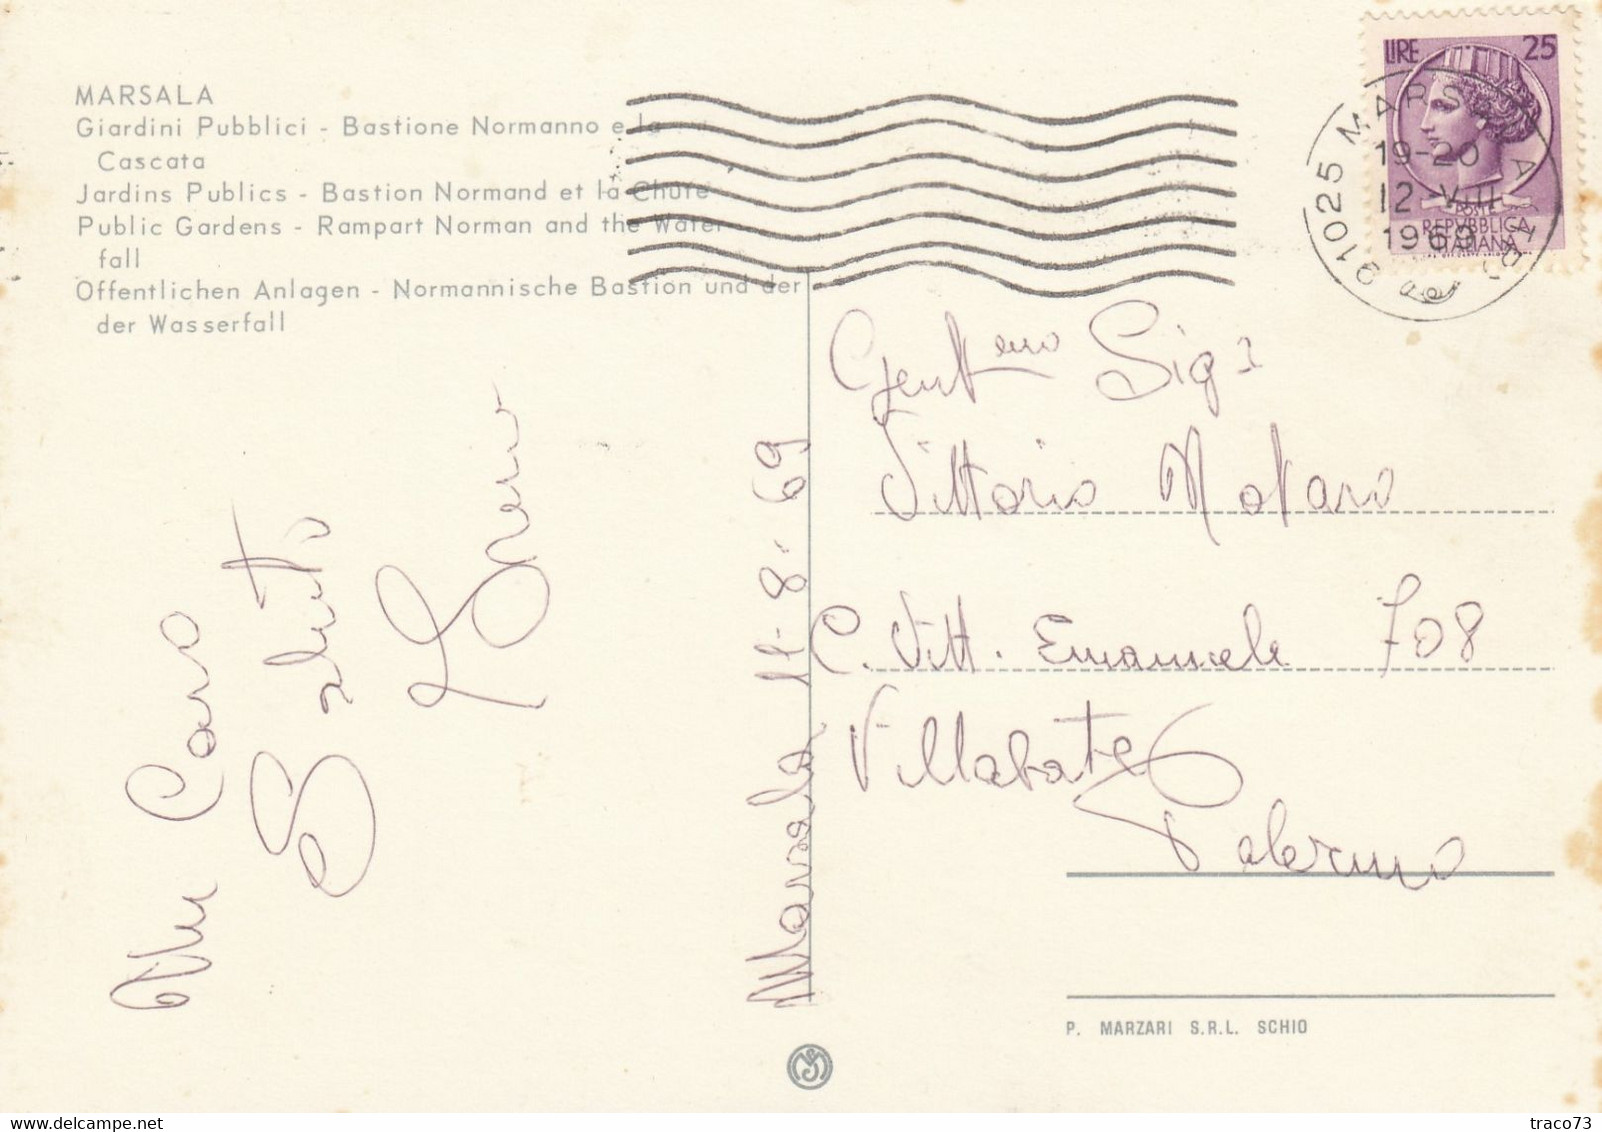 MARSALA
Giardini Pubblici - Bastione Normanno e la
Cascata
Jardins Publics - Bastion Normand et la Chute
Public Gardens - Rampart Norman and the Water
fall
Offentlichen Anlagen - Normannische Bastion und der
der Wasserfall
LIRE 25
POSTE
REPVBBLICA
ITALIANA
91025 MARSALA
19-20
12 VIII
1969
Un Caro
Saluto
Marsala 11-8-69
Gent.mo Sig.
Vittorio Notaro
C. Vitt. Emanuele 708
Villabate
Palermo
P. MARZARI S.R.L. SCHIO
traco73